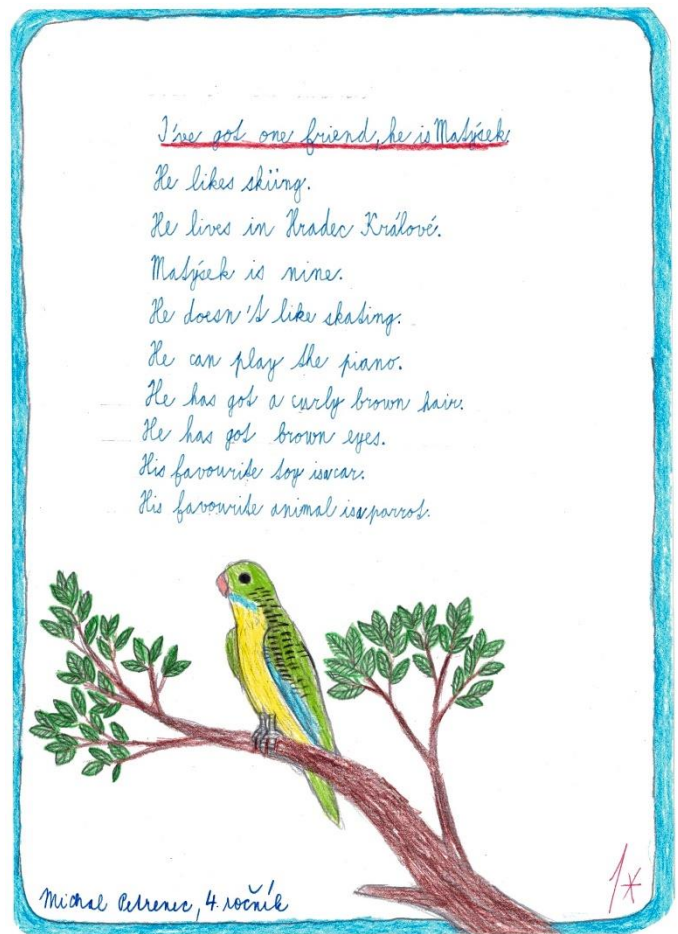 I've got one friend, he is Matýsek
He likes skiing.
He lives in Hradec Králové.
Matýsek is nine.
He doesn't like skating.
He can play the piano.
He has got a curly brown hair.
He has got brown eyes.
His favourite toy is a car.
His favourite animal is a parrot.
Michal Petrenec, 4. ročník
1*